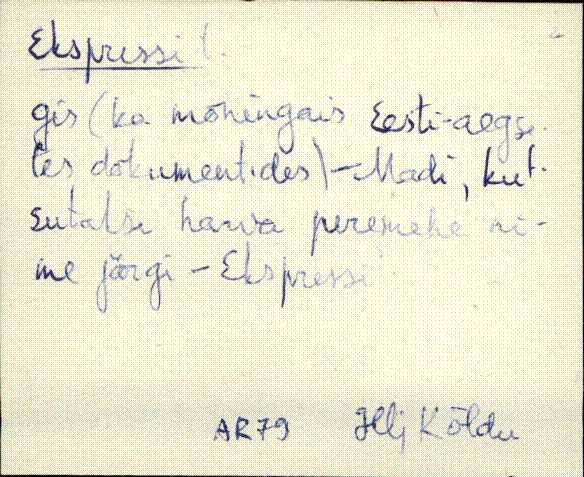 Ekspressi t.
gis (ka mõningais Eesti-aegse-
tes dokumentides) - Madi, kut-
sutakse harva peremehe ni-
me järgi - Ekspressi.
AR79 Hlj Kõldu